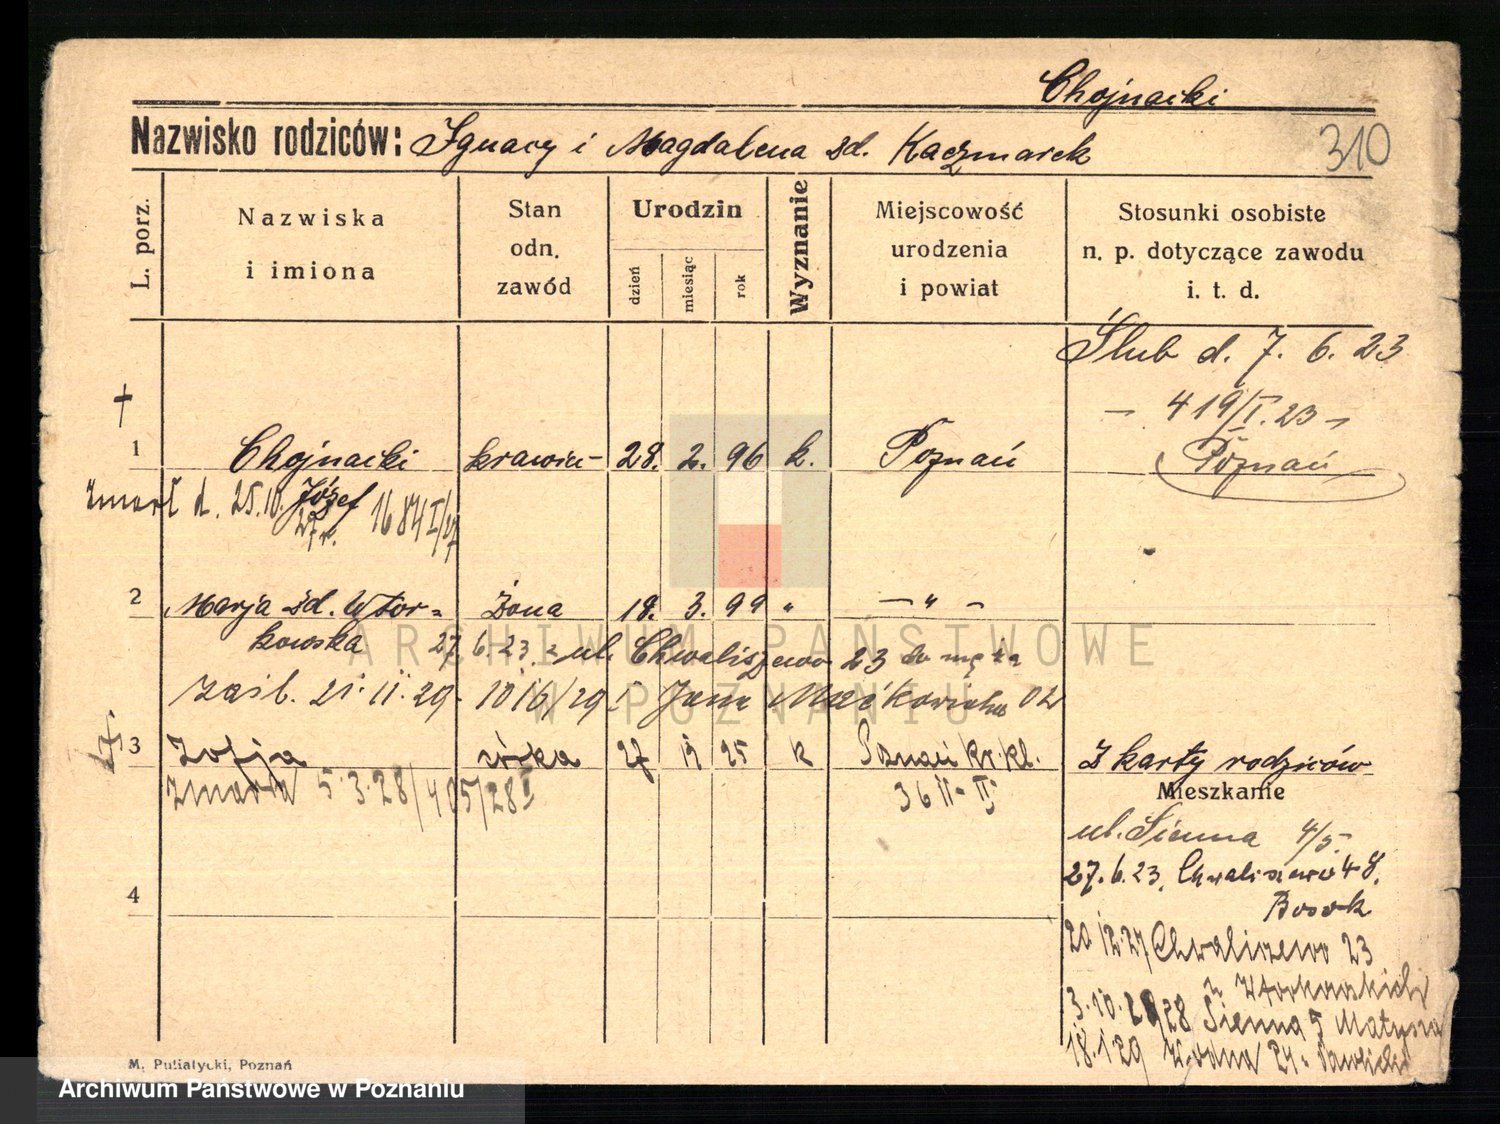 Chojnacki
Nazwisko rodziców: Ignacy i Magdalena zd. Kaczmarek
310
L. porz.
Nazwiska i imiona
Stan odn. zawód
Urodzin
dzień
miesiąc
rok
Wyznanie
Miejscowość urodzenia i powiat
Stosunki osobiste n. p. dotyczące zawodu i. t. d.
Ślub d. 7. 6. 23
— 419/I. 23 —
Poznań
†
1 Chojnacki krawiec 28. 2. 96 k. Poznań
Józef
zmarł d. 25.10. 27 r. 1684 I/27
2 Marja zd. Wtor= Żona 18. 3. 99 „ — „ —
kowska 27.6.23. z ul. Chwaliszewo 23 do męża
Zaśl. 21. 11. 29 1016/29 I Jana
3 Zofja córka 27 25 k Poznań kr. kl.
zmarła 5.3.28/405/28 I
Z karty rodziców
Mieszkanie
ul. Sienna 4/5.
27.6.23. Chwaliszewo 48.
20 12.27 Chwaliszewo 23
Wtorkowskich
3.10.28 Sienna 5
18.1.29 Wodna 24
4
M. Putiatycki, Poznań
ARCHIWUM PAŃSTWOWE
W POZNANIU
Archiwum Państwowe w Poznaniu